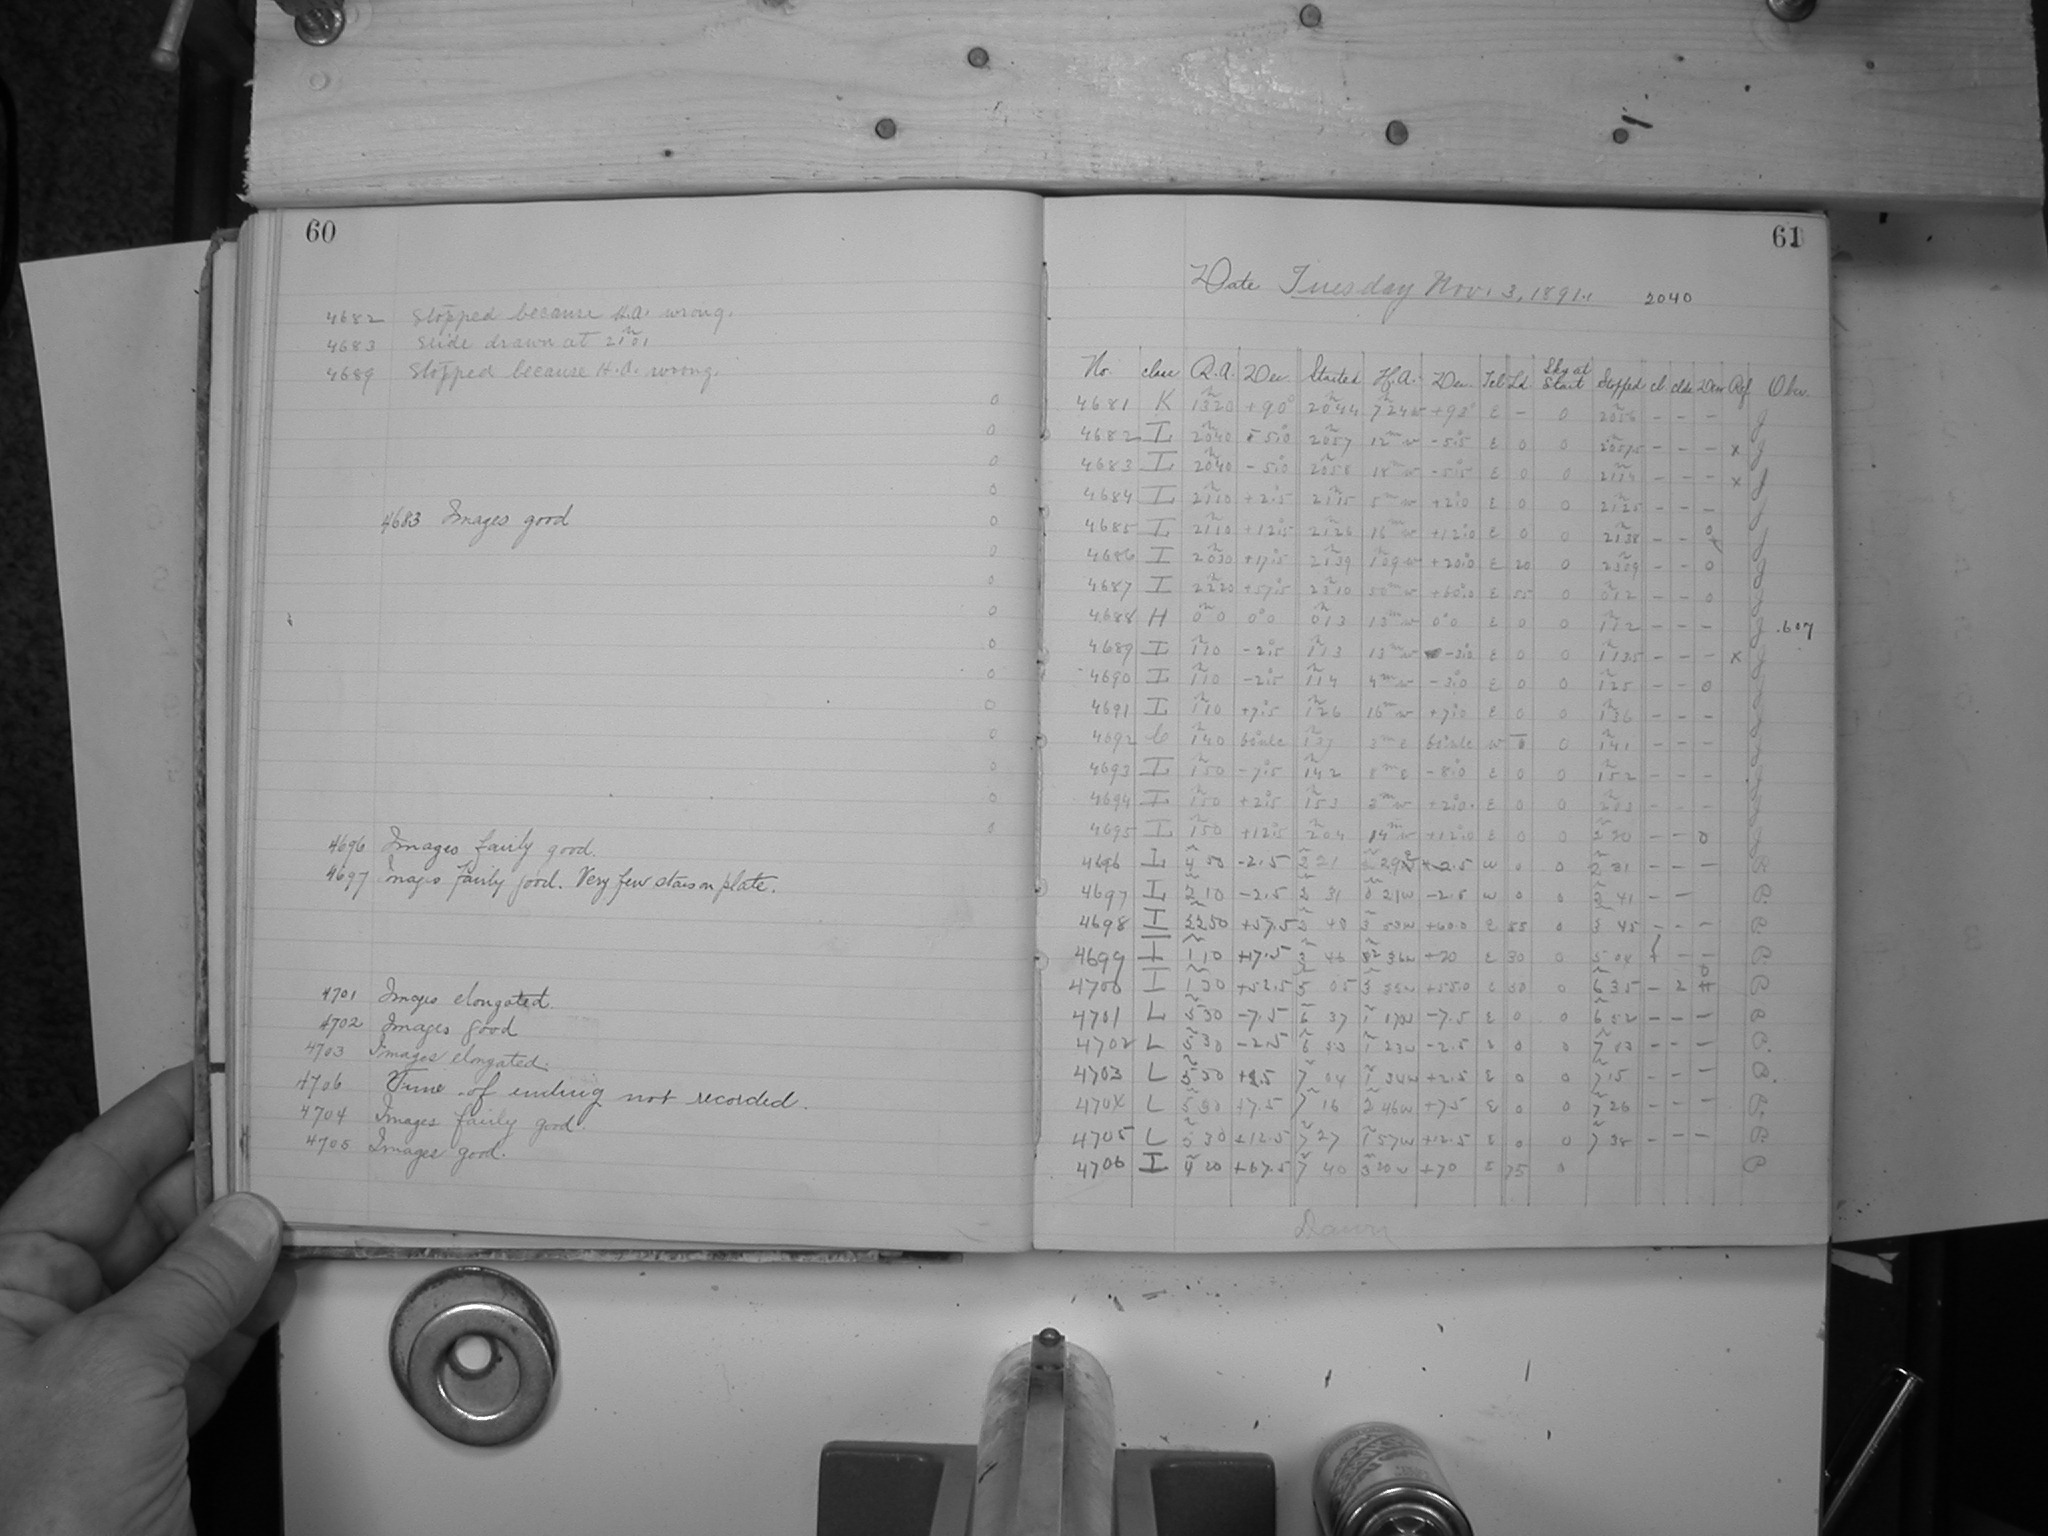 60
4682 Stopped because H.A. wrong.
4683 Slide drawn at 21h01
4689 Stopped because H.A. wrong.
4683 Images good
4696 Images fairly good.
4697 Images fairly good. Very few stars on plate.
4701 Images elongated.
4702 Images good
4703 Images elongated.
4706 Time of ending not recorded.
4704 Images fairly good.
4705 Images good.
61
Date Tuesday Nov. 3, 1891. 2040
No. class R.A. Dec. Started H.A. Dec. Tel Ld. Sky at Start Stopped cl. clds Dew Ref Obsr.
4681 K 1320 +90° 2044 724w E - 0 2056 - - -
4682 I 2040 2057 12m w E 0 0 - - - x
4683 I 2040 -5.0 2058 18m w -5.5 E 0 0 - - - x
4684 I 2110 +2.5 2115 5m w +2.0 E 0 0 2125 - - -
4685 I 2110 +12.5 2126 16m w +12.0 E 0 0 2138 - - 0
4686 I 2030 +17.5 2139 1 09 w +20.0 E 20 0 2309 - - 0
4687 I 2220 +57.5 2310 50m w +60.0 E 55 0 012 - - 0
4688 H 0 0 0.0 013 13m w 0.0 E 0 0 112 - - - .607
4689 I 110 -2.5 113 13m w -3.0 E 0 0 1135 - - - x
4690 I 110 -2.5 114 4m w -3.0 E 0 0 125 - - 0
4691 I 110 +7.5 126 16m w +7.0 E 0 0 136 - - -
4692 C 140 3m E w 0 141 - - -
4693 I 150 -7.5 142 8m E -8.0 E 0 0 152 - - -
4694 I 150 +2.5 153 3m w +2.0 E 0 0 203 - - -
4695 I 150 +12.5 204 14m w +12.0 E 0 0 2 20 - - 0
4696 L -2.5 2 21 w 0 0 2 31 - - -
4697 L 2 10 -2.5 2 31 0 21w -2.5 w 0 0 2 41 - -
4698 I 2250 +57.5 3 53w +60.0 E 55 0 3 45 - - -
4699 I 1 10 +17.5 3 46 36w +20 E 30 0 5 04 - -
4700 I 1 30 +52.5 5 05 3 35w +55.0 E 50 0 6 35 - 2
4701 L 5 30 -7.5 6 37 1 17w -7.5 E 0 0 6 52 - - -
4702 L 5 30 -2.5 6 53 1 23w -2.5 E 0 0 7 03 - - -
4703 L 5 30 +2.5 7 04 1 34w +2.5 E 0 0 7 15 - - -
4704 L 5 30 +7.5 7 16 46w +7.5 E 0 0 7 26 - - -
4705 L 5 30 +12.5 7 27 1 57w +12.5 E 0 0 7 38 - - -
4706 I 4 20 +67.5 7 40 3 20w +70 E 75 0
Dawn